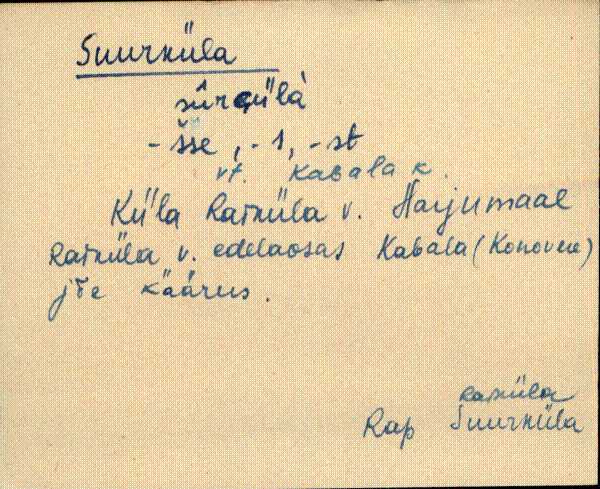 Suurküla
sūrGülà
- šse, - l, - st
vt. Kabala k.
Küla Raiküla v. Harjumaal
Raiküla v. edelaosas Kabala (Konovere)
jõe käärus.
Raiküla
Rap Suurküla